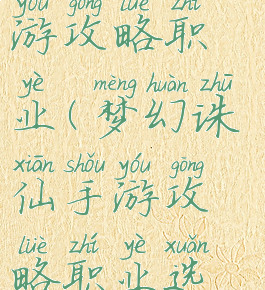 yóu gōng lüè zhí
游攻略职
yè mèng huàn zhū
业(梦幻诛
xiān shǒu yóu gōng
仙手游攻
lüè zhí yè xuǎn
略职业选